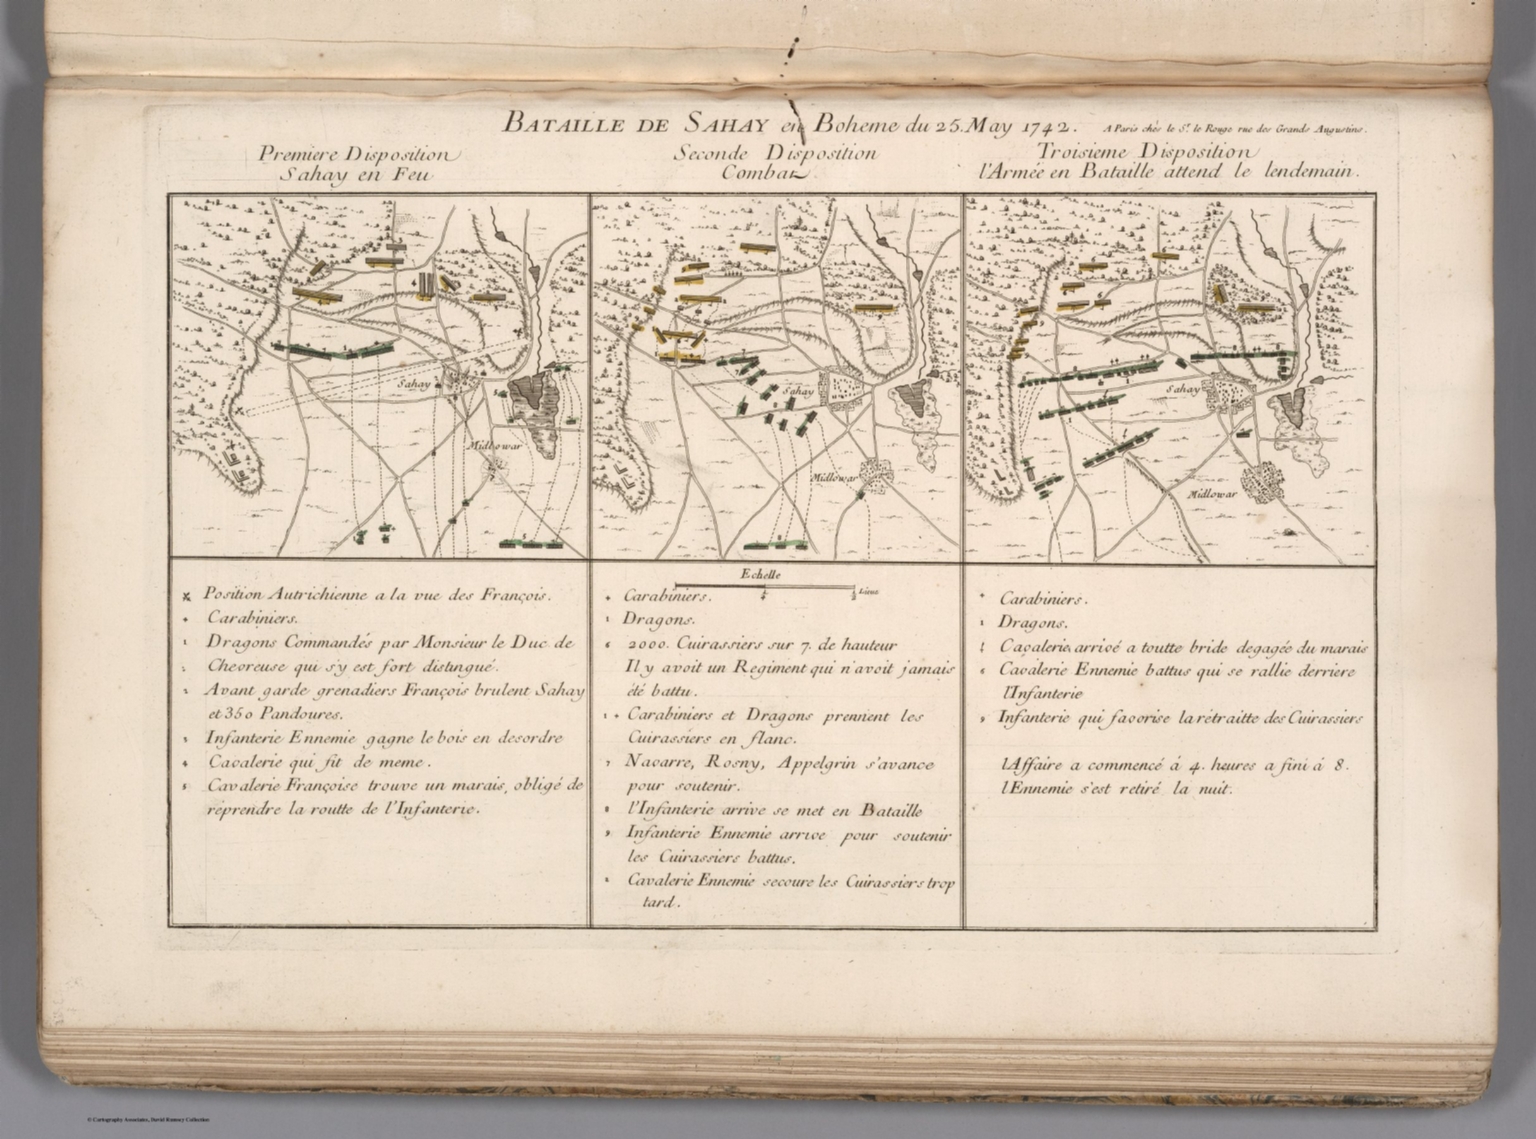 BATAILLE DE SAHAY en Boheme du 25. May 1742. A Paris chés le Sr. le Rouge rue des Grands Augustins.
Premiere Disposition
Sahay en Feu
Seconde Disposition
Combat
Troisieme Disposition
l'Armée en Bataille attend le lendemain.
Sahay
Midlowar
Sahay
Midlowar
Sahay
Midlowar
Position Autrichienne a la vue des François.
Carabiniers.
Dragons Commandés par Monsieur le Duc de
Chevreuse qui s'y est fort distingué.
Avant garde grenadiers François brulent Sahay
et 350 Pandoures.
Infanterie Ennemie gagne le bois en desordre
Cavalerie qui fit de meme.
Cavalerie Françoise trouve un marais, obligé de
reprendre la routte de l'Infanterie.
Echelle
Lieue
+ Carabiniers.
1 Dragons.
6 2000. Cuirassiers sur 7. de hauteur
Il y avoit un Regiment qui n'avoit jamais
été battu.
1 + Carabiniers et Dragons prennent les
Cuirassiers en flanc.
7 Navarre, Rosny, Appelgrin s'avance
pour soutenir.
8 l'Infanterie arrive se met en Bataille
9 Infanterie Ennemie arrive pour soutenir
les Cuirassiers battus.
Cavalerie Ennemie secoure les Cuirassiers trop
tard.
Carabiniers.
Dragons.
Cavalerie arrivé a toutte bride degagée du marais
Cavalerie Ennemie battus qui se rallie derriere
l'Infanterie
9 Infanterie qui favorise la retraitte des Cuirassiers
l'Affaire a commencé á 4. heures a fini á 8.
l'Ennemie s'est retiré la nuit.
© Cartography Associates, David Rumsey Collection